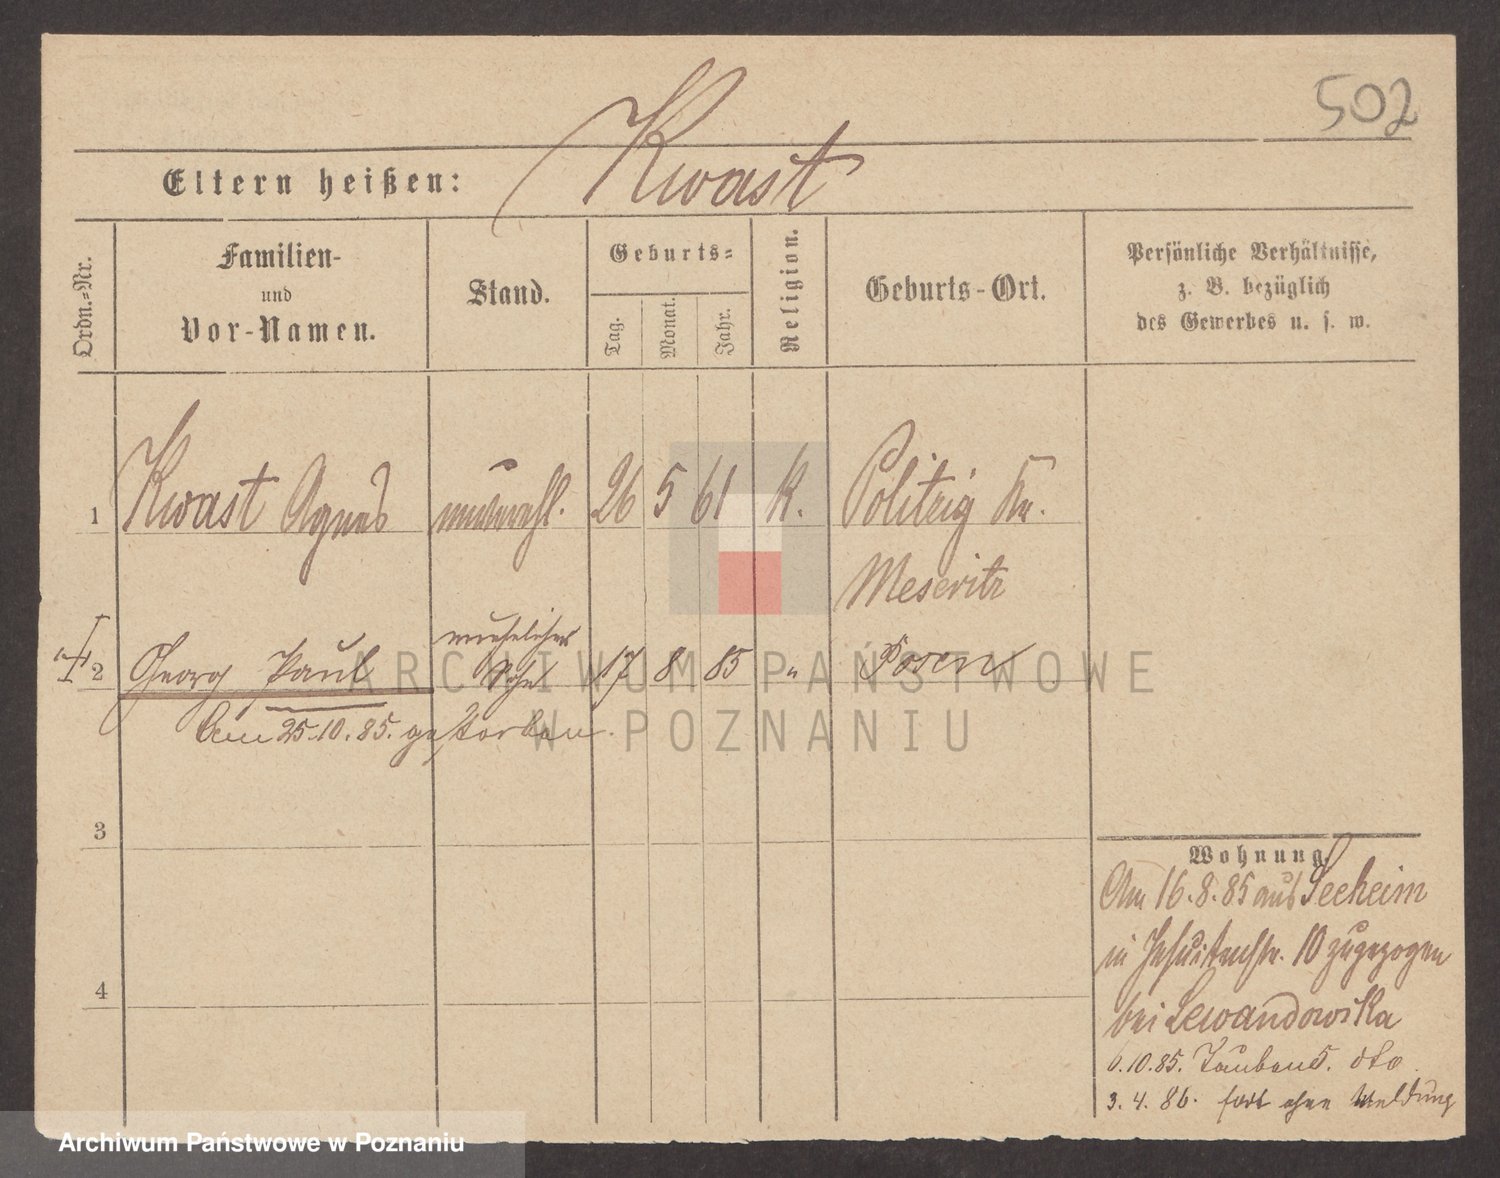 502
Kwast
Eltern heißen:
Ordn.=Nr.
Familien-
und
Vor-Namen.
Stand.
Geburts=
Tag.
Monat.
Jahr.
Religion.
Geburts-Ort.
Persönliche Verhältnisse,
z. B. bezüglich
des Gewerbes u. s. w.
1 Kwast Agnes unverehl. 26 5 61 K. Politzig Kr.
Meseritz
unehelicher
2 Georg Paul Sohn 17 8 85 " Posen
Am 25.10.85. gestorben.
3
4
Wohnung.
Am 16.8.85 aus Seeheim
in Jesuitenstr. 10 zugezogen
bei Lewandowska
6.10.85. Tauben 5. dto.
3.4.86. fort ohne Meldung
ARCHIWUM PAŃSTWOWE
W POZNANIU
Archiwum Państwowe w Poznaniu